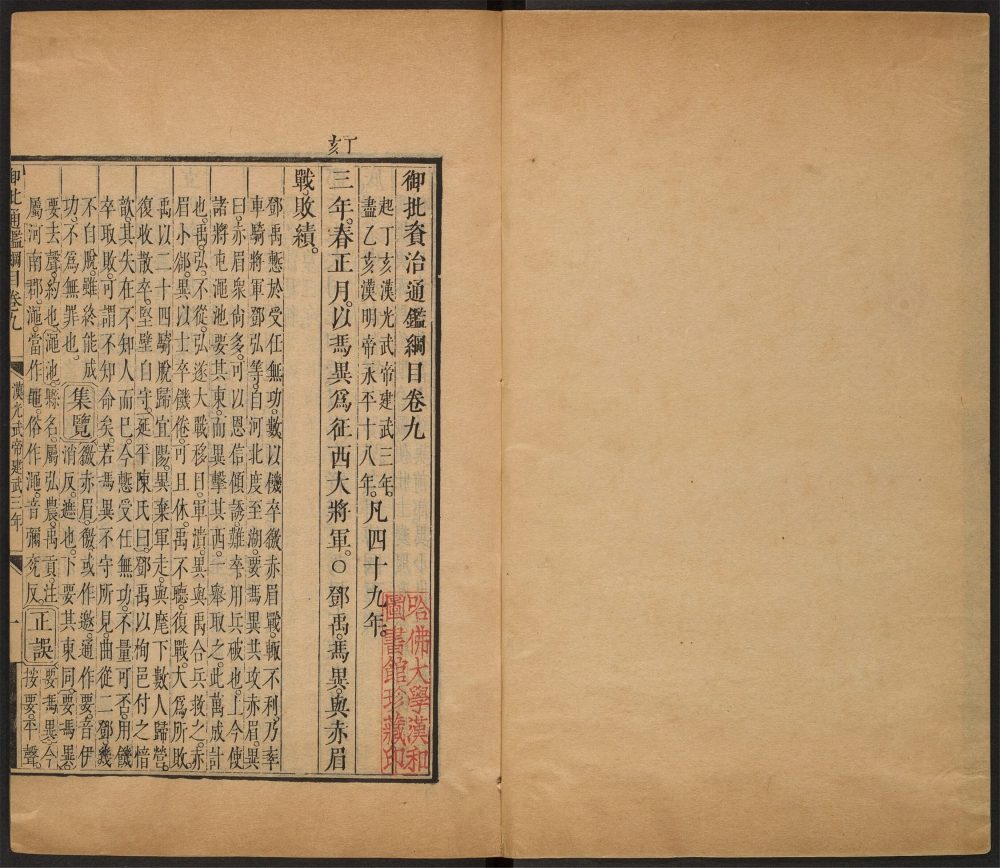 御批資治通鑑綱目卷九
起丁亥漢光武帝建武三年
盡乙亥漢明帝永平十八年。凡四十九年。
丁亥
三年。春正月。以馮異爲征西大將軍。○鄧禹馮異與赤眉
戰。敗績。
鄧禹慙於受任無功。數以饑卒徼赤眉戰。輒不利。乃率
車騎將軍鄧弘等。自河北度至湖。要馮異共攻赤眉。異
曰。赤眉衆尚多。可以恩信傾誘。難卒用兵破也。上今使
諸將屯澠池。要其東。而異擊其西。一舉取之。此萬成計
也。禹弘不從。弘遂大戰移日。軍潰。異與禹合兵救之。赤
眉小郤。異以士卒饑倦。可且休。禹不聽。復戰。大爲所敗。
禹以二十四騎脫歸宜陽。異棄軍走。與麾下數人歸營。
復收散卒。堅壁自守。延平陳氏曰。鄧禹以栒邑付之愔
歆。其失在不知人而已。今慙受任無功。不量可否。用饑
卒取敗。可謂不知命矣。若馮異不守所見。曲從二鄧。幾
不自脫。雖終能成
功。不爲無罪也。
集覽
徼赤眉。徼或作邀。通作要。音伊
消反。遮也。下要其東同。要馮異。
要去聲。約也。澠池。縣名。屬弘農。禹貢注
屬河南郡。澠。當作黽。俗作澠。音彌兗反。
正誤
要馮異。今
按要。平聲。
御批通鑑綱目卷九
漢光武帝建武三年
一
哈佛大學漢和
圖書館珍藏印